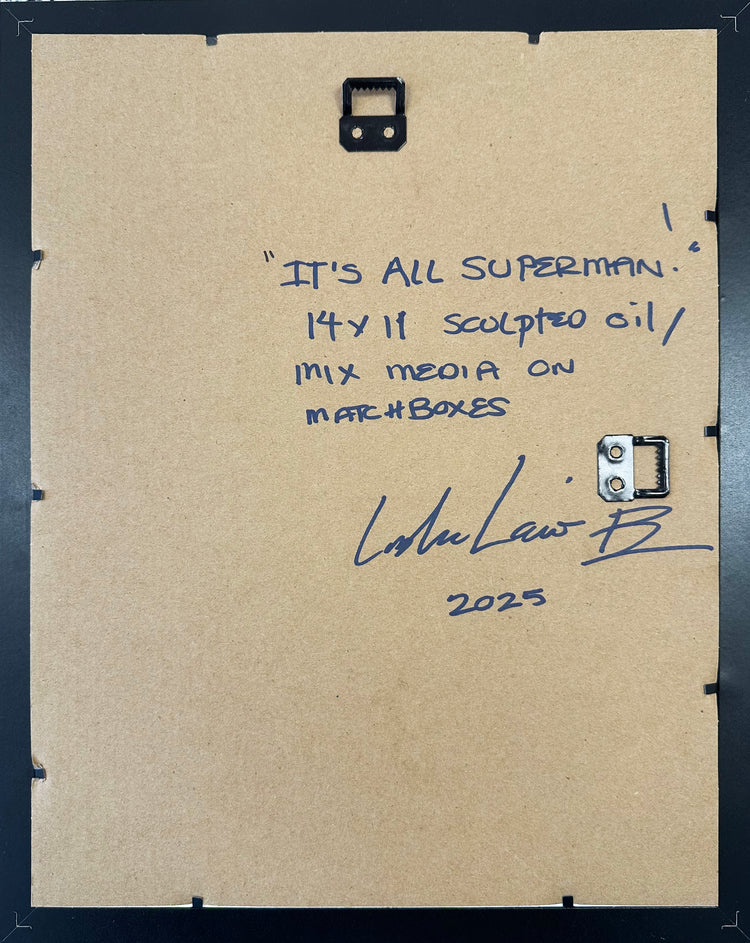 "IT'S ALL SUPERMAN!"
14x11 SCULPTED OIL/
MIX MEDIA ON
MATCHBOXES
2025